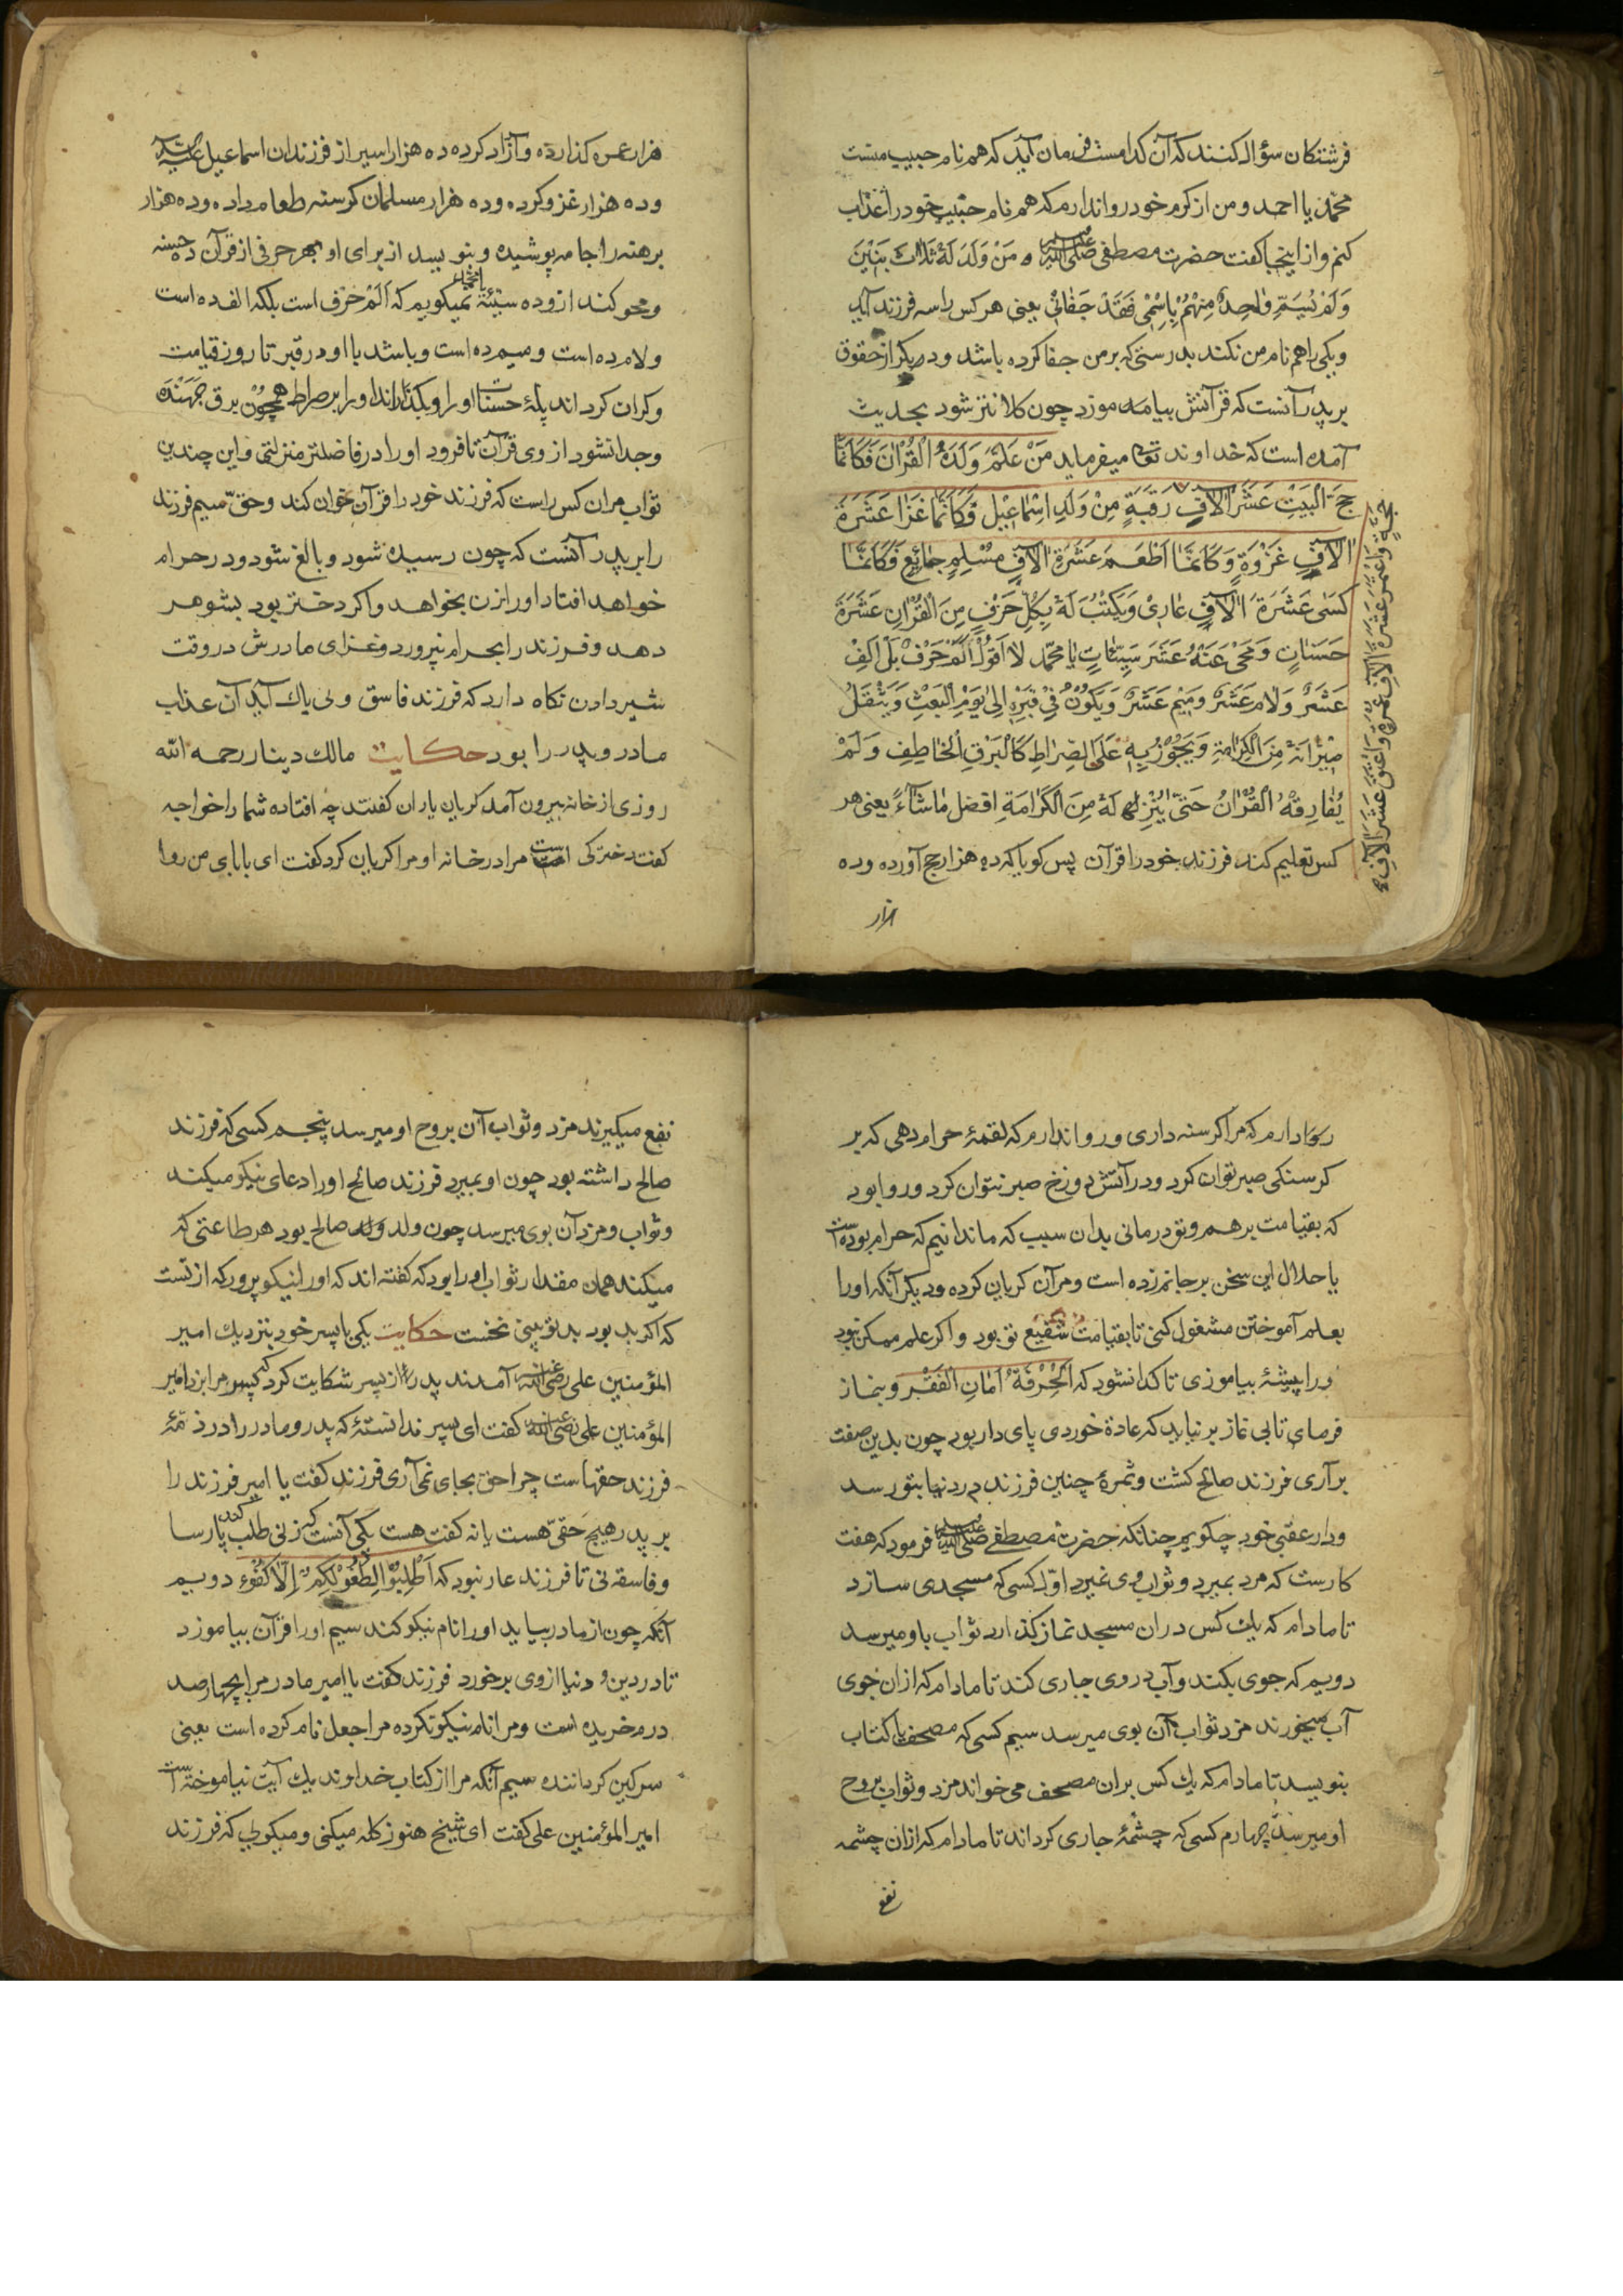 فرشتکان سؤال کنند که آن کدامست فرمان آید که هم نام حبیب منست
محمّد یا احمد و من از کرم خود روا ندارم که هم نام حبیب خود را عذاب
کنم و از اینجا کفت حضرت مصطفی صلی الله علیه وسلم و مَنْ وَلَدَ لَهُ ثَلَاثَ بَنِیْنَ
وَلَمْ یُسَمِّ وٰاحِدٌ مِنْهُمْ بِاِسْمِیْ فَقَدْ جَفٰانِیْ یعنی هر کس را سه فرزند آید
و یکی را هم نام من نکند بدرستی که بر من جفا کرده باشد و دیکر از حقوق
بر پدر آنست که قرآنش بیاموزد چون کلانتر شود بحدیث
آمده است که خداوند تعا میفرماید مَنْ عَلَّمَ وَلَدَهُ الْقُرْاٰنَ فَکَاَنَّمَا
حَجَّ الْبَیْتِ عَشَرَ اٰلآفٍ رَقَبَةٍ مِنْ وَلَدِ اِسْمٰاعِیْلَ فَکَاَنَّمَا غَزَا عَشَرَةَ
اٰلآفٍ غَزْوَةٍ وَکَاَنَّمَا اَطْعَمَ عَشَرَةَ اٰلآفٍ مُسْلِمٍ جٰائِعٍ فَکَاَنَّمَا
کَسٰی عَشَرَةَ اٰلآفٍ عٰارِیْ وَیَکْتُبُ لَهُ بِکُلِّ حَرْفٍ مِنَ الْقُرْاٰنِ عَشَرَةَ
حَسَنٰاتٍ وَمَحٰی عَنْهُ عَشَرَ سَیِّئَاتٍ یٰا مُحَمَّد لا اَقُوْلُ الٓمٓ حَرْفٌ بَلْ اَلِفْ
عَشَرٌ وَلٰام عَشَرٌ وَمِیْم عَشَرٌ وَیَکُوْنُ فِیْ قَبْرِهِ اِلیٰ یَوْمِ الْبَعْثِ وَیَثْقُلُ
مِیْزٰانَهُ مِنَ الْکَرٰامَةِ وَیَجُوْزُ بِهِ عَلَی الصِّرٰاطِ کَالْبَرْقِ الْخٰاطِفِ وَلَمْ
یُفٰارِقْهُ الْقُرْاٰنُ حَتّٰی یُنْزِلَ لَهُ مِنَ الْکَرٰامَةِ افضل مٰا شٰاءَ یعنی هر
کس تعلیم کند فرزند خود را قرآن پس کویا که ده هزار حج آورده و ده
هزار
حَجَّةٍ وَاعْتَمَرَ عَشَرَةَ اٰلآفِ عُمْرَةٍ وَاَعْتَقَ عَشَرَ اٰلآفٍ صح
هزار عمره کذارده و آزاد کرده ده هزار اسیر از فرزندان اسماعیل علیه السلام
و ده هزار غزو کرده و ده هزار مسلمان کرسنه طعام داده و ده هزار
برهنه را جامه پوشیده و بنویسد از برای او بهر حرفی از قرآن ده حسنه
و محو کند از و ده سیّئة نمیکویم که اَلَمْ حَرْف است بلکه الف ده است
و لام ده است و میم ده است و باشد با او در قبر تا روز قیامت
و کران کرداند پلهٔ حسنات او را و بکذراند او را بر صراط همچون برق جهنده
و جدا نشود از وی قرآن تا فرود او را در فاضلتر منزلتی و این چندین
ثواب مران کس راست که فرزند خود را قرآن خوان کند و حقّ سیم فرزند
را بر پدر آنست که چون رسیده شود و بالغ شود و در حرام
خواهد افتاد او را زن بخواهد و اکر دختر بود بشوهر
دهد و فرزند را بحرام نپرورد و غزای مادرش در وقت
شیر دادن نکاه دارد که فرزند فاسق و بی باک آید آن عذاب
مادر و پدر را بود حکایت مالک دینار رحمه الله
روزی از خانه بیرون آمد کریان یاران کفتند چه افتاده شما را خواجه
کفت دخترکی است مرا در خانه او مرا کریان کرد کفت ای بابای من روا
روا دارم که مرا کرسنه داری و روا ندارم که لقمهٔ حرام دهی که بر
کرسنکی صبر توان کرد و در آتش دوزخ صبر نتوان کرد و روا بود
که بقیامت بر هم و تو درمانی بدان سبب که ما ندانیم که حرام بوده است
یا حلال این سخن بر جانم زده است و مرا آن کریان کرده و دیکر آنکه او را
بعلم آموختن مشغول کنی تا بقیامت شفیع تو بود و اکر علم ممکن نبود
ورا پیشهٔ بیاموزی تا کدا نشود که اَلْحِرْفَةُ اَمٰانِ الْفَقْر و بنماز
فرمای تا بی نماز بر نیاید که عادة خوردی پای دار بود چون بدین صفت
بر آری فرزند صالح کشت و ثمرهٔ چنین فرزند در دنیا بتو رسد
و در عقبی خود چکویم چنانکه حضرت مصطفی صلی الله علیه وسلم فرمود که هفت
کارست که مرد بمیرد و ثواب وی نمیرد اوّل کسی که مسجدی سازد
تا مادام که یک کس در ان مسجد نماز کذارد ثواب باو میرسد
دویم که جوی بکند و آب در وی جاری کند تا مادام که از ان جوی
آب میخورند مزد ثواب آن بوی میرسد سیم کسی که مصحف یا کتاب
بنویسد تا مادام که یک کس بران مصحف می خواند مزد و ثواب بروح
او میرسد چهارم کسی که چشمهٔ جاری کرداند تا مادام که ازان چشمه
نفع
نفع میکیرند مزد و ثواب آن بروح او میرسد پنجم کسی که فرزند
صالح داشته بود چون او بمیرد فرزند صالح او را دعای نیکو میکند
و ثواب و مزد آن بوی میرسد چون ولد صالح بود هر طاعتی که
میکند همان مقدار ثواب او را بود که کفته اند که او را نیکو پرور که از تست
که اکر بد بود بد تو بینی نخست حکایت یکی با پسر خود بنزدیک امیر
المؤمنین علی رضی الله عنه آمدند پدر از پسر شکایت کرد که پسر مرا بزد امیر
المؤمنین علی رضی الله عنه کفت ای پسر ندانستهٔ که پدر و مادر را در ذمّهٔ
فرزند حقهاست چرا حق بجای نمی آری فرزند کفت یا امیر فرزند را
بر پدر هیچ حقّی هست یا نه کفت هست یکی آنست که زنی طلب کند پارسا
و فاسقه نی تا فرزند عار نبود که اُطْلُبُوْا لِنُطَفِکُمْ اِلّا کُفُوْءٍ دویم
آنکه چون از مادر بیاید او را نام نیکو کند سیم او را قرآن بیاموزد
تا در دین و دنیا از وی برخورد فرزند کفت یا امیر مادر مرا بچهار صد
درم خریده است و مرا نام نیکو نکرده مرا جعل نام کرده است یعنی
سرکین کرداننده سیم آنکه مرا از کتاب خداوند یک آیت نیاموخته است
امیر المؤمنین علی کفت ای شیخ هنوز کله میکنی و میکوئی که فرزند